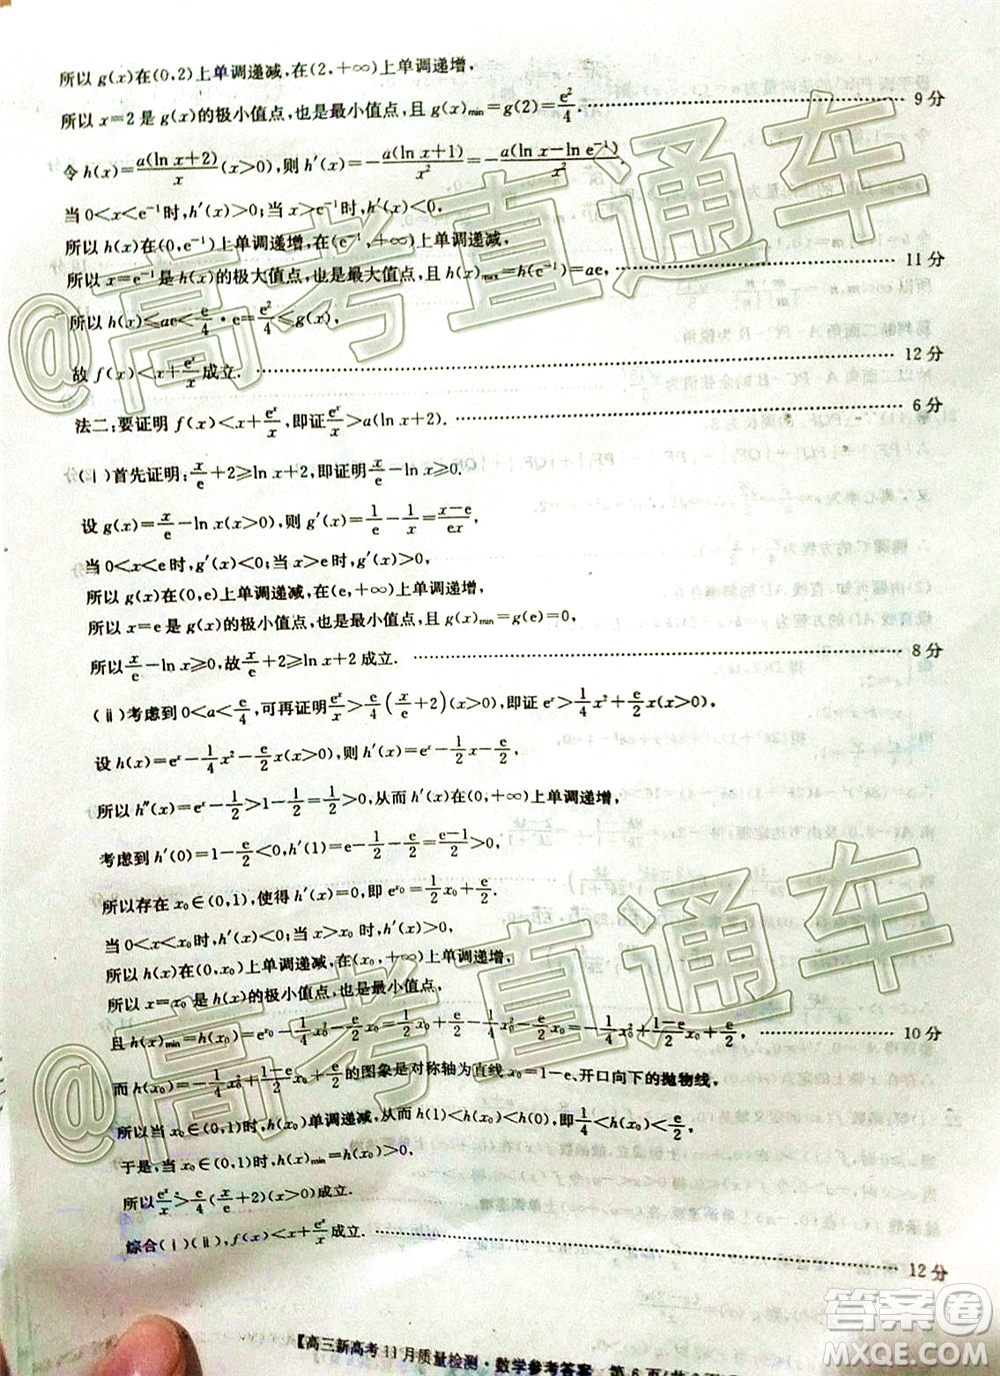 所以 g(x)在(0,2)上单调递减,在(2,+∞)上单调递增,
所以 x=2 是 g(x)的极小值点,也是最小值点,且 g(x)min=g(2)=e²/4. ………… 9 分
令 h(x)=a(ln x+2)/x (x>0),则 h′(x)=-a(ln x+1)/x²=-a(ln x-ln e⁻¹)/x².
当 0<x<e⁻¹时,h′(x)>0;当 x>e⁻¹时,h′(x)<0,
所以 h(x)在(0,e⁻¹)上单调递增,在(e⁻¹,+∞)上单调递减,
所以 x=e⁻¹是 h(x)的极大值点,也是最大值点,且 h(x)max=h(e⁻¹)=ae, ………… 11 分
所以 h(x)≤ae<e/4·e=e²/4≤g(x),
故 f(x)<x+eˣ/x成立. ………… 12 分
法二:要证明 f(x)<x+eˣ/x,即证eˣ/x>a(ln x+2). ………… 6 分
(ⅰ)首先证明:x/e+2≥ln x+2,即证明x/e≥ln x.
设 g(x)=x/e-ln x(x>0),则 g′(x)=1/e-1/x=(x-e)/ex,
当 0<x<e 时,g′(x)<0;当 x>e 时,g′(x)>0,
所以 g(x)在(0,e)上单调递减,在(e,+∞)上单调递增,
所以 x=e 是 g(x)的极小值点,也是最小值点,且 g(x)min=g(e)=0,
所以x/e-ln x≥0,故x/e+2≥ln x+2 成立. ………… 8 分
(ⅱ)考虑到 0<a<e/4,可再证明eˣ/x>e/4(x/e+2)(x>0),即证 eˣ>1/4x²+e/2x(x>0),
设 h(x)=eˣ-1/4x²-e/2x(x>0),则 h′(x)=eˣ-1/2x-e/2,
所以 h″(x)=eˣ-1/2>1-1/2=1/2>0,从而 h′(x)在(0,+∞)上单调递增,
考虑到 h′(0)=1-e/2<0,h′(1)=e-1/2-e/2=(e-1)/2>0,
所以存在 x₀∈(0,1),使得 h′(x₀)=0,即 eˣ⁰=1/2x₀+e/2.
当 0<x<x₀时,h′(x)<0;当 x>x₀时,h′(x)>0,
所以 h(x)在(0,x₀)上单调递减,在(x₀,+∞)上单调递增,
所以 x=x₀是 h(x)的极小值点,也是最小值点,
且 h(x)min=h(x₀)=eˣ⁰-1/4x₀²-e/2x₀=1/2x₀+e/2-1/4x₀²-e/2x₀=-1/4x₀²+(1-e)/2x₀+e/2, ………… 10 分
而 h(x₀)=-1/4x₀²+(1-e)/2x₀+e/2的图象是对称轴为直线 x₀=1-e,开口向下的抛物线,
所以当 x₀∈(0,1)时,h(x₀)单调递减,从而 h(1)<h(x₀)<h(0),即1/4<h(x₀)<e/2,
于是,当 x₀∈(0,1)时,h(x)min=h(x₀)>1/4>0,
所以eˣ/x>e/4(x/e+2)(x>0)成立.
综合(ⅰ)(ⅱ),f(x)<x+eˣ/x成立. ………… 12 分
【高三新高考 11 月质量检测·数学参考答案 第 6 页
@高考直通车
@高考直通车
答案圈
MXQE.COM